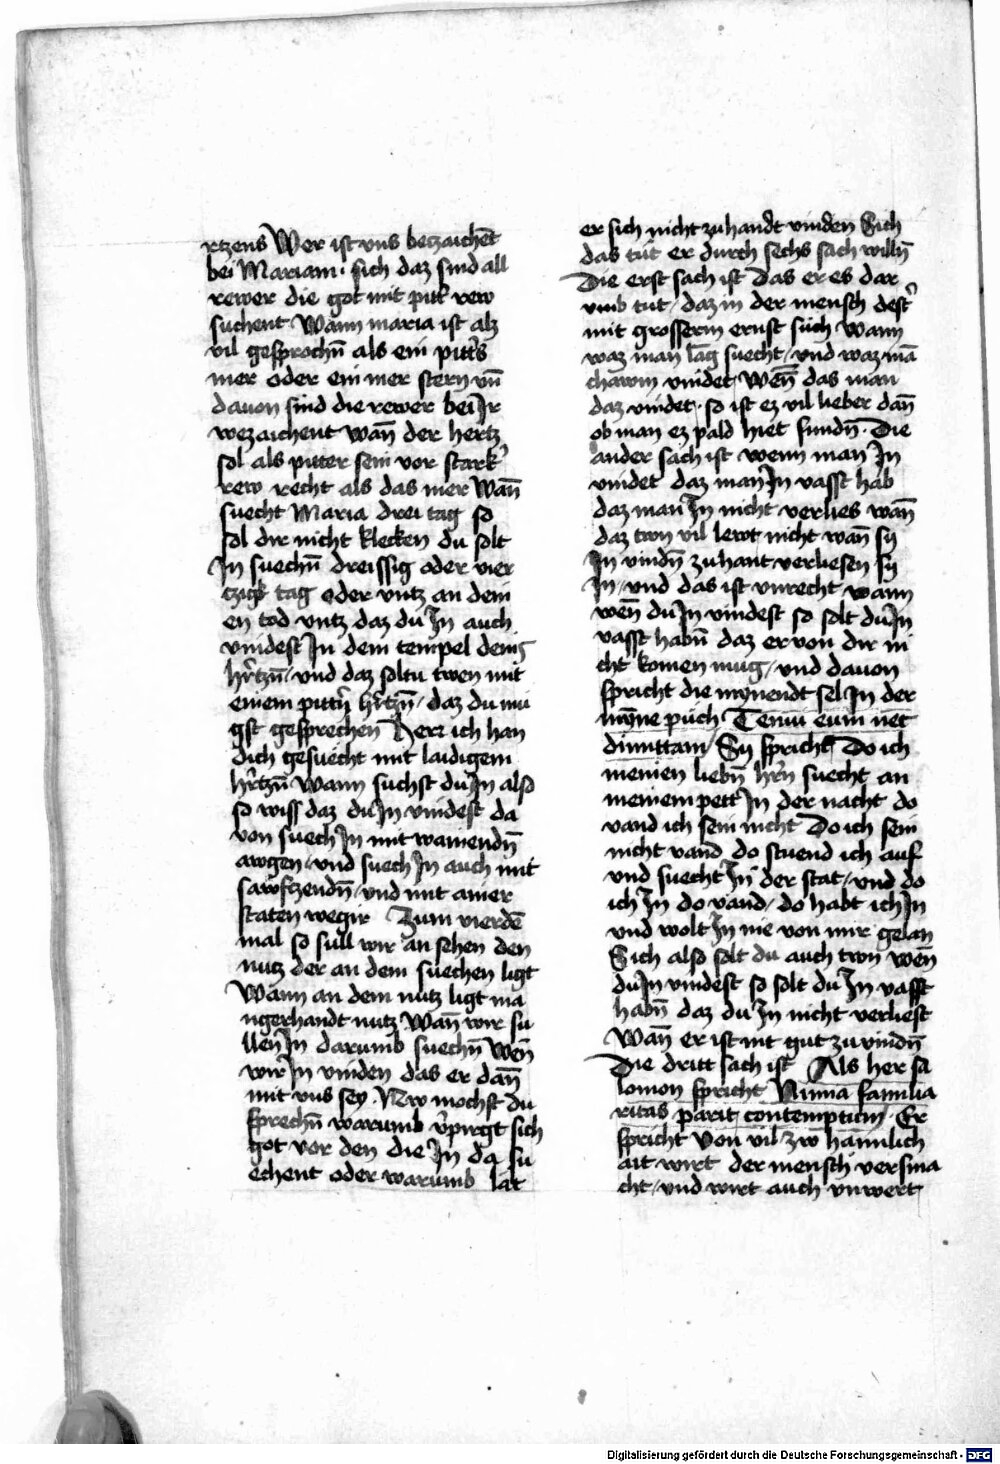 rtzens Wer ist vns betzaichēt
bei Mariam · sich daz sind all
rewer die got mit pittr̄ rew
suchent Wann maria ist alz
vil gesprochn̄ als ein pitt's
mer oder ein mer stern vn̄
dauon sind die rewer bei Ir
wezaichent wan̄ der hertz
sol als pitter sein vor stark'
rew recht als das mer Wan̄
suecht Maria drei tag so
sol dir nicht klecken du solt
In suechn̄ dreissig oder vier
tzigk tag oder vntz an dein
en tod vntz daz du In auch
vindest In dem tempel deins
hr̄tzn̄ / vnd daz soltu twen mit
einem pittr̄ hr̄tzn̄ / daz du mu
gst gesprechen Herr ich han
dich gesuecht mit laidigem
hr̄tzn̄ Wann suchst du In also
so wiss daz du In vindest da
von suech In mit wainendn̄
awgen / vnd suech In auch mit
sawftzendn̄ / vnd mit ainer
staten wegir Zum vierdē
mal so sull wir an sehen den
nutz der an dem suechen ligt
Wann an dem nutz ligt ma
ngerhandt nutz Wan̄ wir su
llen In darumb suechn̄ Wen̄
wir In vinden das er dan̄
mit vns sey · Now mochst du
sprechn̄ warumb v'pirgt sich
got vor den die In da su
echent oder warumb lat
er sich nicht zuhandt vinden Sich
das tut er durch sechs sach willn̄
Die erst sach ist Das er es dar
vmb tut / daz in der mensch dest'
mit grosserm ernst such Wann
waz man lāg suecht / vnd waz mā
chawm vindet Wen̄ das man
daz vindet · so ist ez vil lieber dan̄
ob man ez pald hiet fundn̄ · Die
ander sach ist wenn man In
vindet daz man In vasst hab
daz man In nicht verlies wan̄
daz twn vil lewt nicht wan̄ sy
In vindn̄ zuhant verliesen sy
In / vnd das ist vnrecht wann
wen̄ du In vindest so solt du In
vasst habn̄ daz er von dir ni
cht komen mug / vnd dauon
spricht die mynendt sel In der
mynne puch Tenui eum nec
dimittam Sy spricht Do ich
meinen liebn̄ hr̄n suecht an
meinem pett In der nacht do
vand ich sein nicht Do ich sein
nicht vand do stuend ich auf
vnd suecht In der stat / vnd do
ich In do vand / do habt ich In
vnd wolt In nie von mir gelan
Sich also solt du auch twn wen̄
du In vindest so solt du In vasst
habn̄ daz du In nicht verliest
Wan̄ er ist nit gut zu vindn̄
Die dritt sach ist Als her sa
lomon spricht Nimia familia
ritas parit contemptum · Er
spricht Von vil zw hamlich
ait wirt der mensch versma
cht / vnd wirt auch vnwert
Digitalisierung gefördert durch die Deutsche Forschungsgemeinschaft - DFG